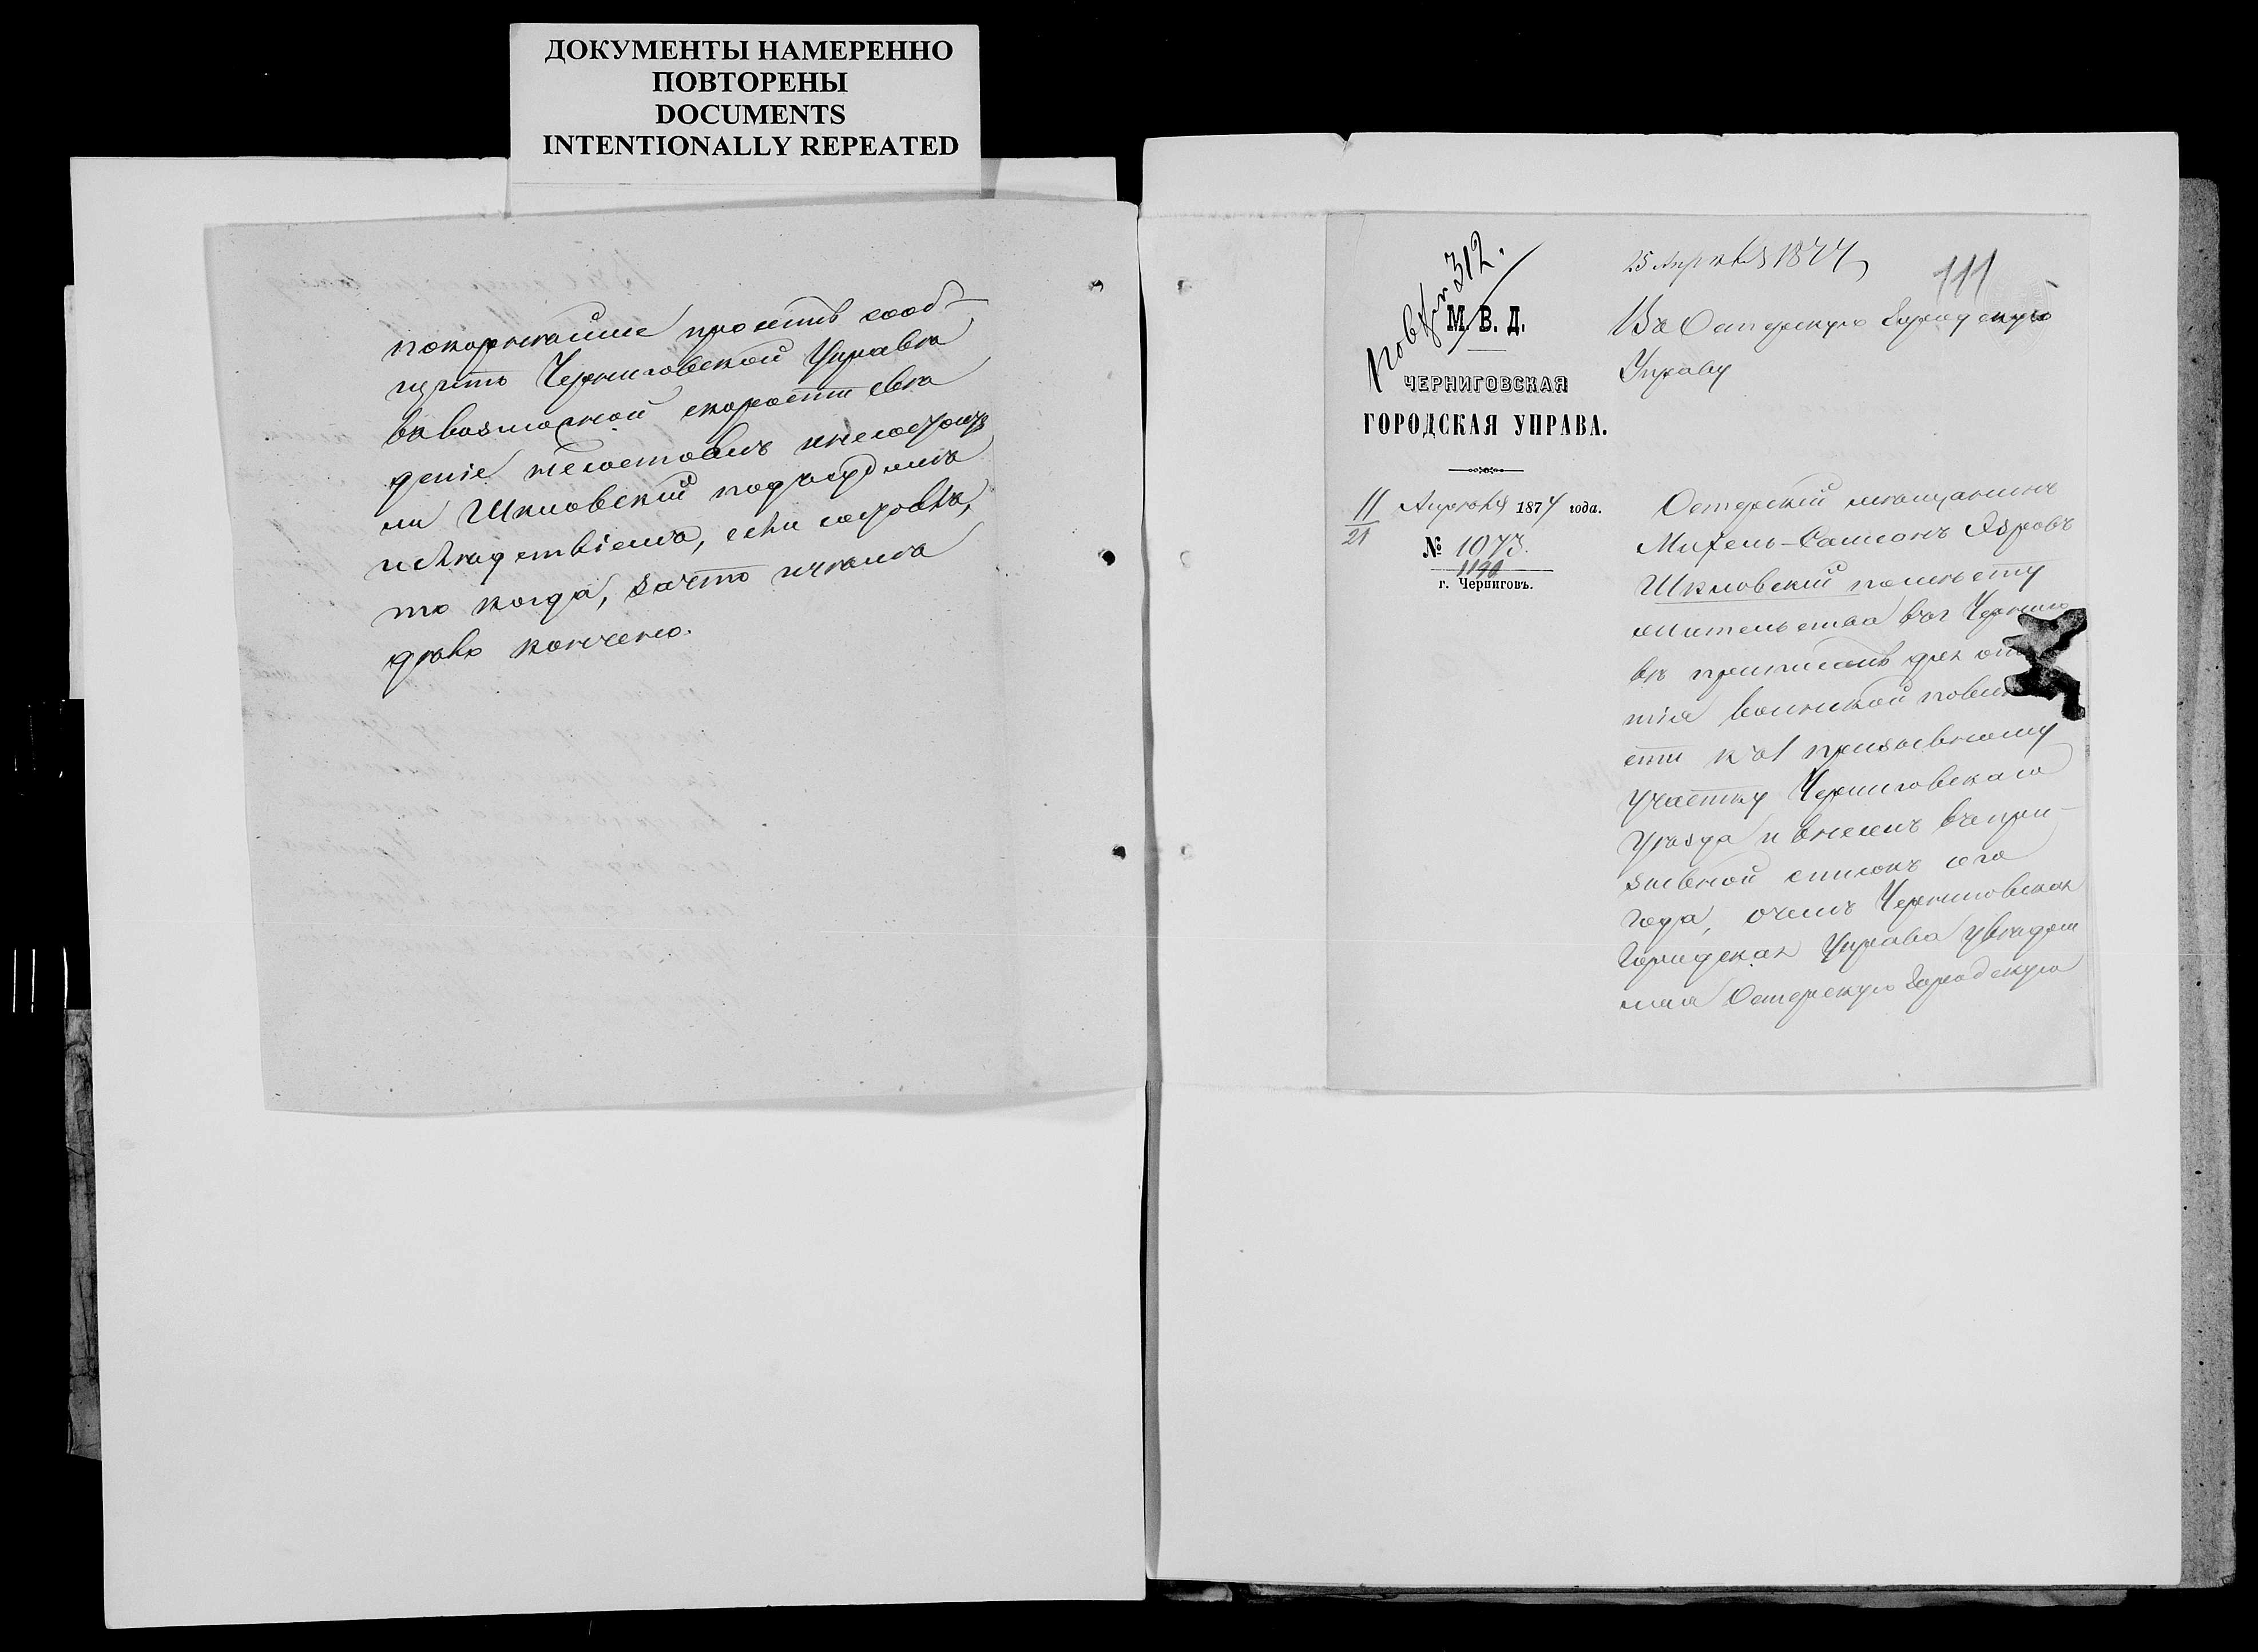 ДОКУМЕНТЫ НАМЕРЕННО
ПОВТОРЕНЫ
DOCUMENTS
INTENTIONALLY REPEATED
покорнѣйше просить сооб-
щить Черниговской Управѣ
въ возможной скорости свѣ
деніе несостоитъ ли
ли Шкловскій подъ судомъ
и слѣдствіемъ, если
то когда, за что и чѣмъ
дѣло кончено.
312.
М. В. Д.
ЧЕРНИГОВСКАЯ
ГОРОДСКАЯ УПРАВА.
11 Апрѣля 1874 года.
21
№ 1073.
1190
г. Черниговъ.
25 Апрѣля 1874
111
Въ Остерскую Городскую
Управу
Остерскій мѣщанинъ
Михель-Самсонъ
Шкловскій по мѣсту
жительства въ г Черниго
вѣ приписанъ для
тія воинской повинно
сти къ 1 призывному
участку Черниговскаго
Уѣзда и внесенъ въ при-
зывной списокъ сего
года, о чемъ Черниговская
Городская Управа увѣдом
ляя Остерскую Городскую